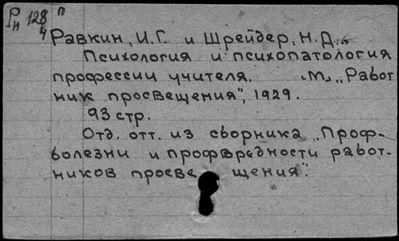 Рн 128 п
4
Равкин, И.Г. и Шрейдер, Н.Д.
Психология и психопатология
профессии учителя. М., „Работ
ник просвещения", 1929.
93 стр.
Отд. отт. из сборника „Проф-
болезни и профвредности работ-
ников просвещения".